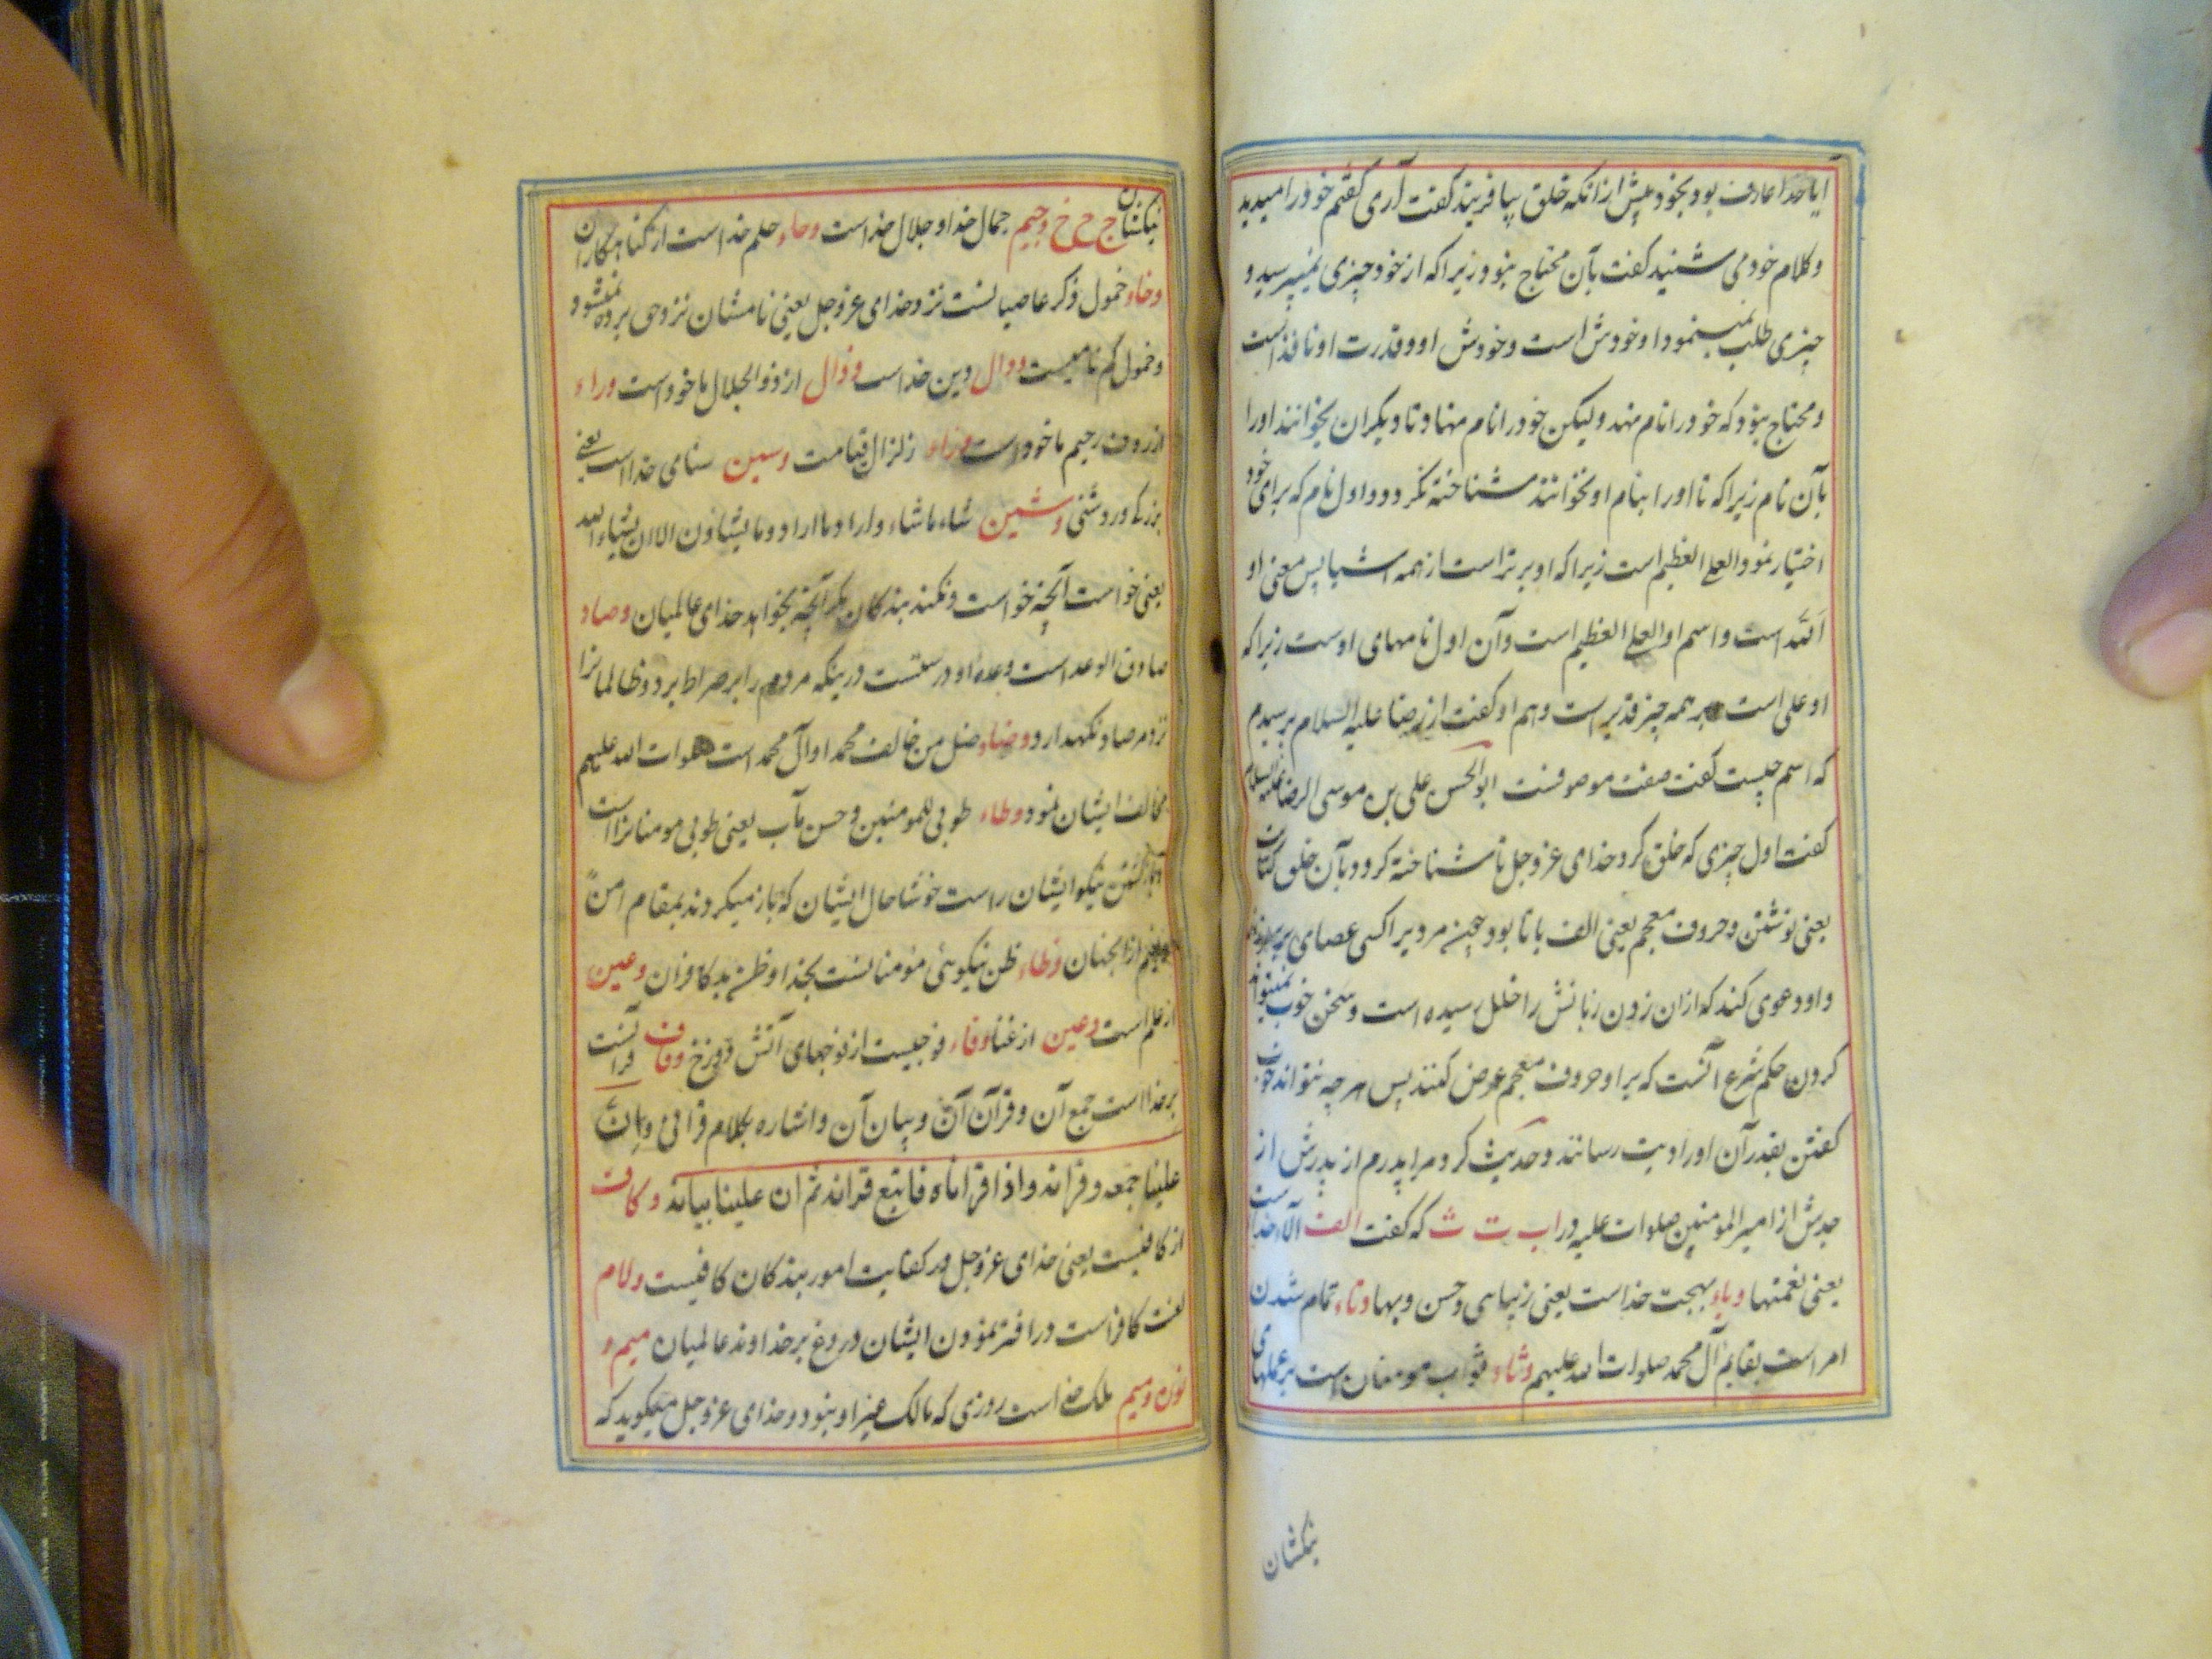 آیا خدا عارف بود بخود پیش ازانکه خلق بیافریند کفت آری کفتم خود را میدید
و کلام خود می شنید کفت بآن محتاج نبود زیرا که از خود چیزی نمیپرسید و
چیزی طلب نمینمود او خودش است و خودش او و قدرت او نافذ است
و محتاج نبود که خود را نام نهد و لیکن خود را نام نهاد تا دیکران بخوانند او را
بآن نام زیرا که تا او را بنام او نخوانند شناخته نکردد و اول نام که برای خود
اختیار نمود العلی العظیم است زیرا که او برتر است از همه اشیا پس معنی او
الله است و اسم او العلی العظیم است و آن اول نامهای اوست زیرا که
او علی است بر همه چیز قدیر است و هم او کفت از رضا علیه السلام پرسیدم
که اسم چیست کفت صفت موصوفست ابو الحسن علی بن موسی الرضا علیه السلام
کفت اول چیزی که خلق کرد خدای عز و جل تا شناخته کردد بآن خلق کتابت
یعنی نوشتن و حروف معجم یعنی الف با تا بود چون مردیرا کسی عصای بر سر زند
و او دعوی کند که ازان زدن زبانش را خلل رسیده است و سخن خوب نمیتواند
کردن حکم شرع آنست که بر او حروف معجم عرض کنند پس هر چه نتواند خوب
کفتن بقدر آن او را دیت رسانند و حدیث کرد مرا پدرم از پدرش از
جدش از امیر المومنین صلوات علیه در اب ت ث که کفت الف آلاء خداست
یعنی نعمتها و باء بهجت خداست یعنی زیباهی و حسن و بها و تاء تمام شدن
امر است بقایم آل محمد صلوات الله علیهم و ثاء ثواب مومنان است بر عملهای
نیکشان
نیکشان ج ح خ و جیم جمال خدا و جلال خداست و حاء حلم خداست از کناهکاران
و خاء خمول ذکر عاصیانست نزد خدای عز و جل یعنی نامشان نزد حق برده نمیشود
و خمول کم نامیست و دال دین خداست و ذال از ذو الجلال ماخود است و راء
از روف رحیم ماخود است و زاء زلزال قیامت و سین سنای خداست یعنی
بزرکی و روشنی و شین شاء ماشاء و اراد ما اراد و ما یشاؤن الا ان یشاء الله
یعنی خواست آنچه خواست و نکنند بندکان مکر آنچه بخواهد خدای عالمیان و صاد
صادق الوعد است وعدۀ او درستست درینکه مردم را بر صراط برد و ظالمانرا
نزد مرصاد نکهدارد و ضاد ضل من خالف محمدا و آل محمد است صلوات الله علیهم
مخالف ایشان نمود و طاء طوبی للمومنین و حسن مآب یعنی طوبی مومنانراست
بازکشتن نیکو ایشان راست خوشا حال ایشان که باز میکردند بمقام امن
از الجنان و ظاء ظن نیکوئی مؤمنانست بخدا و ظن بد کافران و عین
از علم است و غین از غنا و فاء فوجیست از فوجهای آتش دوزخ و قاف قرآنست
بر خداست جمع آن و قرآن آن و بیان آن و اشاره بکلام قرآنی و ان
علینا جمعه و قرآنه و اذا قراناه فاتبع قرآنه ثم ان علینا بیانه و کاف
از کافیست یعنی خدای عز و جل در کفایت امور بندکان کافیست و لام
لغت کافر است در افتر نمودن ایشان دروغ بر خداوند عالمیان میم و
نون و میم ملک خداست روزی که مالک غیر او نبود و خدای عز و جل میکوید که